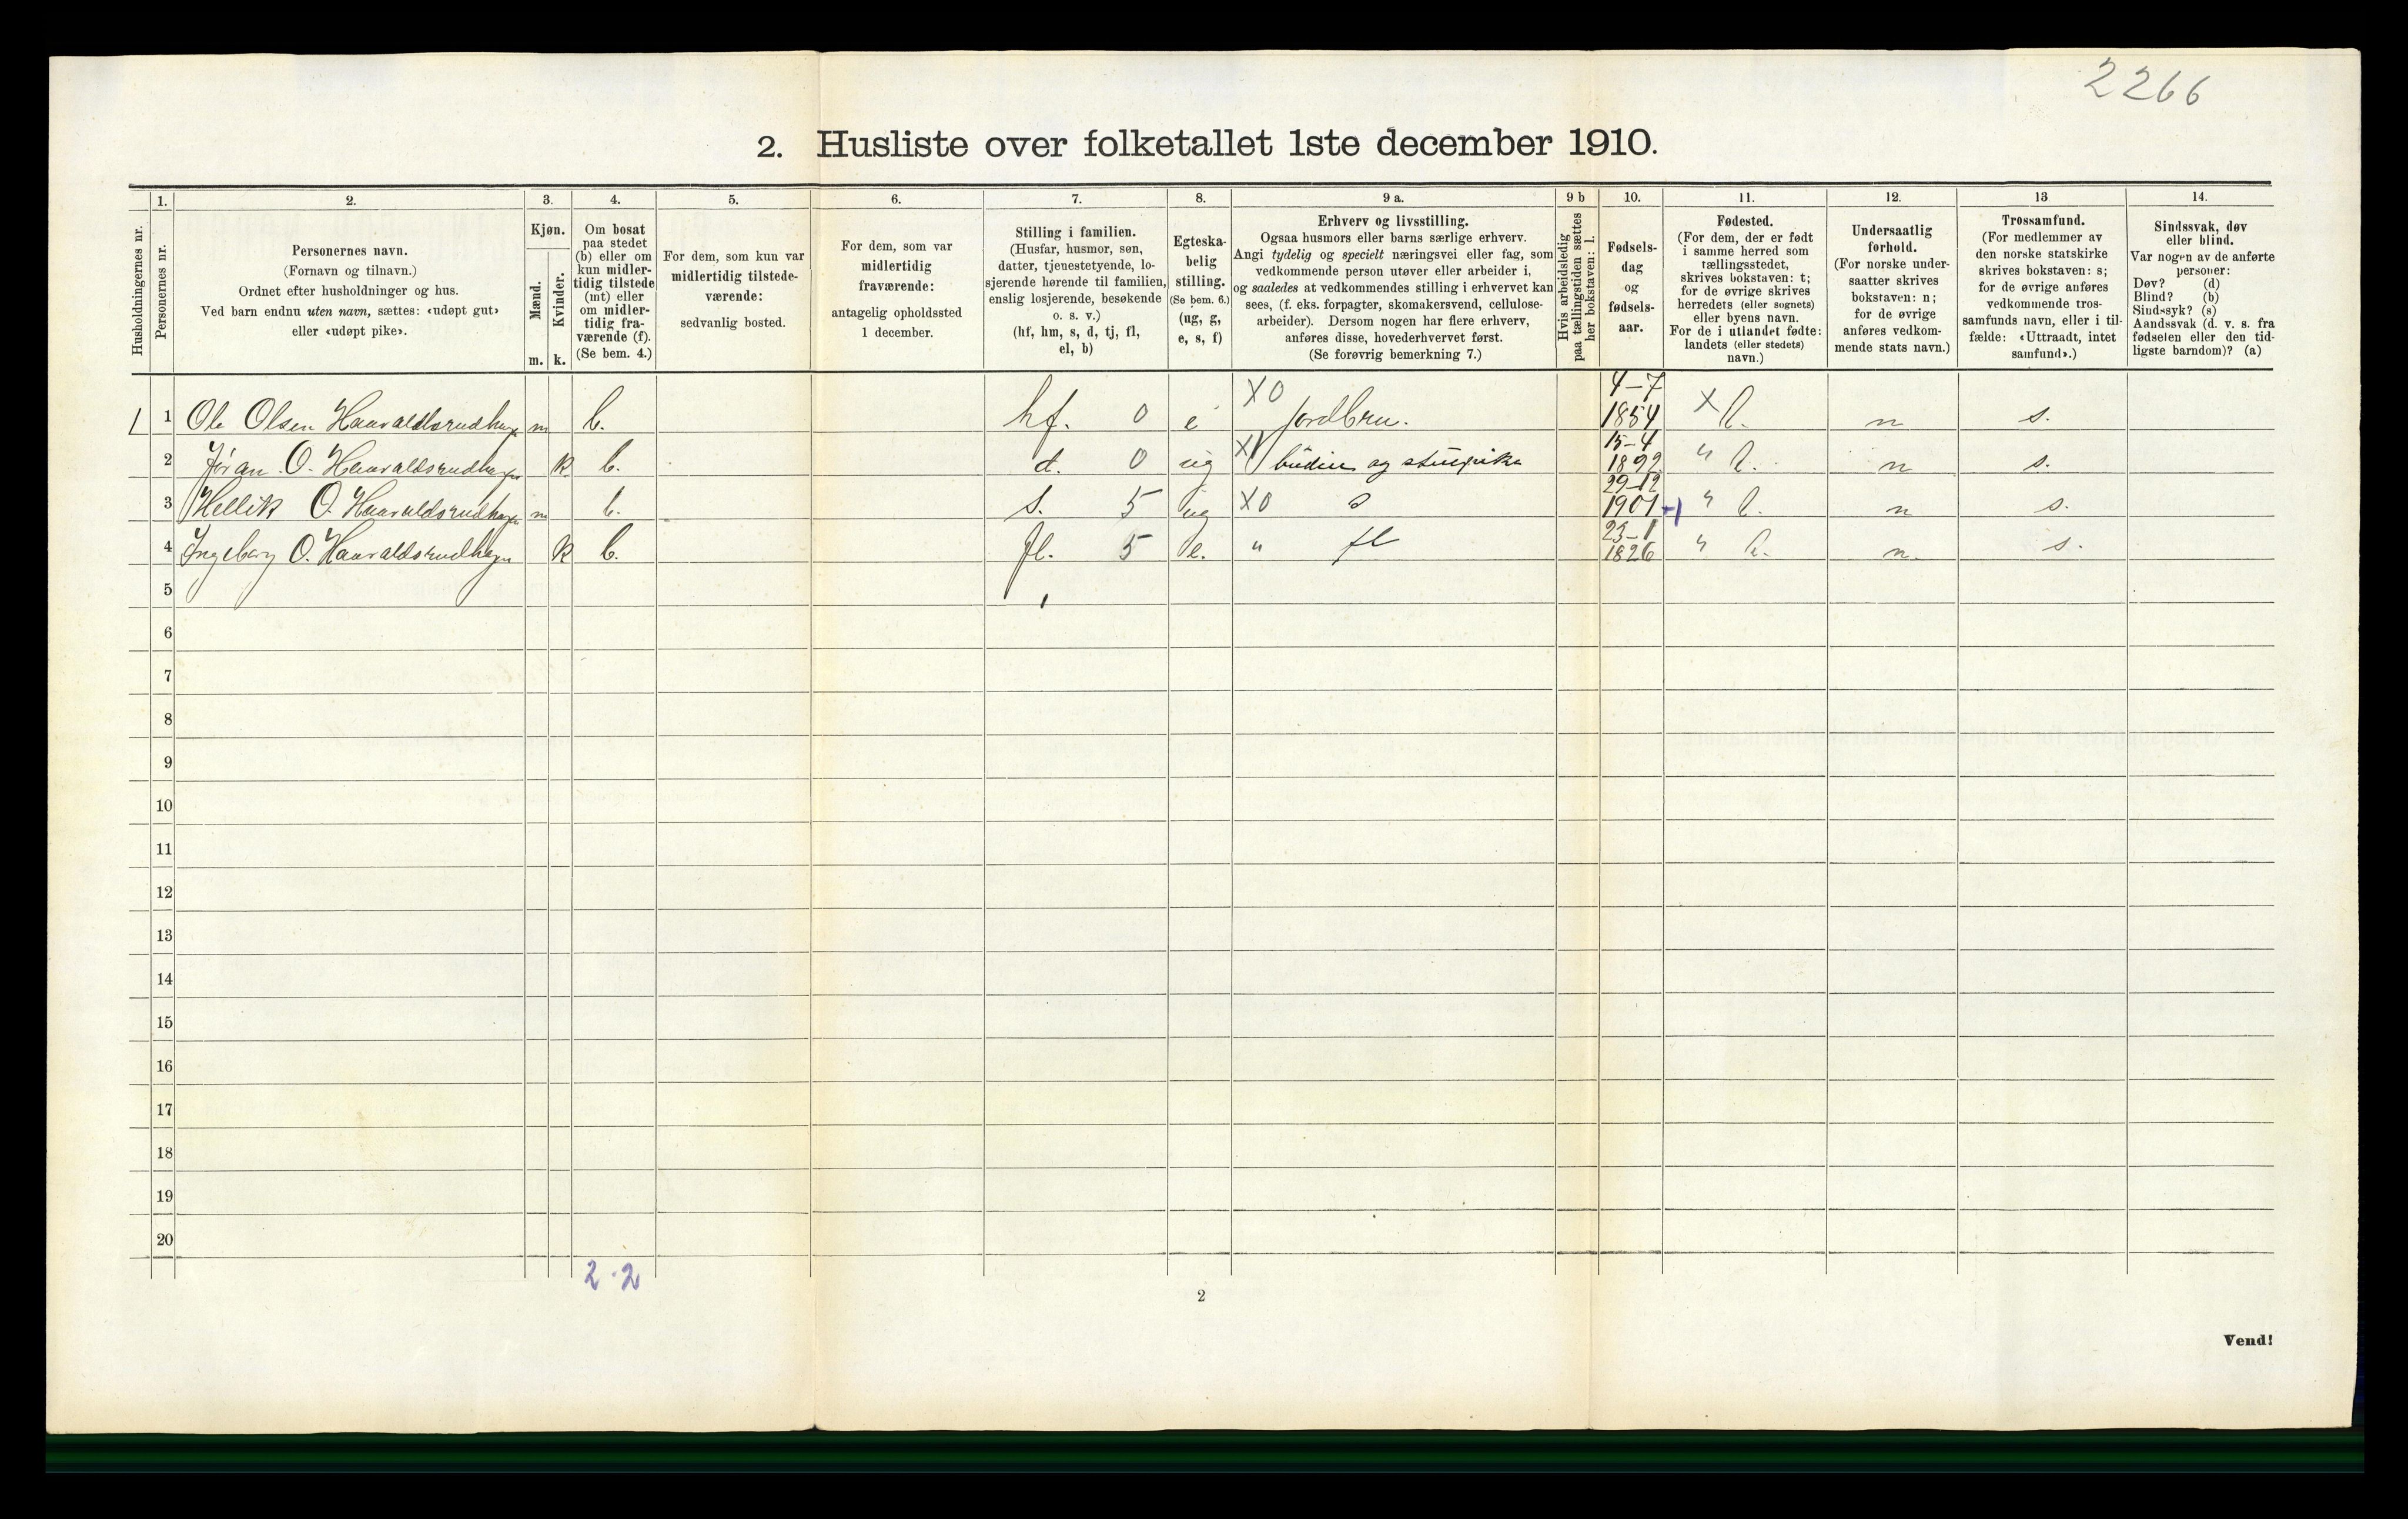 2266
2. Husliste over folketallet 1ste december 1910.
Husholdningernes nr.
1.
Personernes nr.
2.
Personernes navn.
(Fornavn og tilnavn.)
Ordnet efter husholdninger og hus.
Ved barn endnu uten navn, sættes: «udøpt gut»
eller «udøpt pike».
3.
Kjøn.
Mænd.
m.
Kvinder.
k.
4.
Om bosat
paa stedet
(b) eller om
kun midler-
tidig tilstede
(mt) eller
om midler-
tidig fra-
værende (f).
(Se bem. 4.)
5.
For dem, som kun var
midlertidig tilstede-
værende:
sedvanlig bosted.
6.
For dem, som var
midlertidig
fraværende:
antagelig opholdssted
1 december.
7.
Stilling i familien.
(Husfar, husmor, søn,
datter, tjenestetyende, lo-
sjerende hørende til familien,
enslig losjerende, besøkende
o. s. v.)
(hf, hm, s, d, tj, fl,
el, b)
8.
Egteska-
belig
stilling.
(Se bem. 6.)
(ug, g,
e, s, f)
9 a.
Erhverv og livsstilling.
Ogsaa husmors eller barns særlige erhverv.
Angi tydelig og specielt næringsvei eller fag, som
vedkommende person utøver eller arbeider i,
og saaledes at vedkommendes stilling i erhvervet kan
sees, (f. eks. forpagter, skomakersvend, cellulose-
arbeider). Dersom nogen har flere erhverv,
anføres disse, hovederhvervet først.
(Se forøvrig bemerkning 7.)
9 b
Hvis arbeidsledig
paa tællingstiden sættes
her bokstaven: l.
10.
Fødsels-
dag
og
fødsels-
aar.
11.
Fødested.
(For dem, der er født
i samme herred som
tællingsstedet,
skrives bokstaven: t;
for de øvrige skrives
herredets (eller sognets)
eller byens navn.
For de i utlandet fødte:
landets (eller stedets)
navn.)
12.
Undersaatlig
forhold.
(For norske under-
saatter skrives
bokstaven: n;
for de øvrige
anføres vedkom-
mende stats navn.)
13
Trossamfund.
(For medlemmer av
den norske statskirke
skrives bokstaven: s;
for de øvrige anføres
vedkommende tros-
samfunds navn, eller i til-
fælde: «Uttraadt, intet
samfund».)
14.
Sindssvak, døv
eller blind.
Var nogen av de anførte
personer:
Døv? (d)
Blind? (b)
Sindssyk? (s)
Aandssvak (d. v. s. fra
fødselen eller den tid-
ligste barndom)? (a)
1 Ole Olsen Haavaldsrudhagen m b. hf. 0 e X0 jordbru. 4-7 1854 X t. n s.
2 Jøran O. Haavaldsrudhagen k b. d. 0 ug X budeie og stuepike 15-4 1892 " t. n s.
3 Hellik O. Haavaldsrudhagen m b. s. 5 ug X0 s 29-12 1901 " t. n s.
4 Ingeborg O. Haavaldsrudhagen k b. fl. 5 e. " fl 23-1 1826 " t. n. s.
5
6
7
8
9
10
11
12
13
14
15
16
17
18
19
20
2·2
2
Vend!